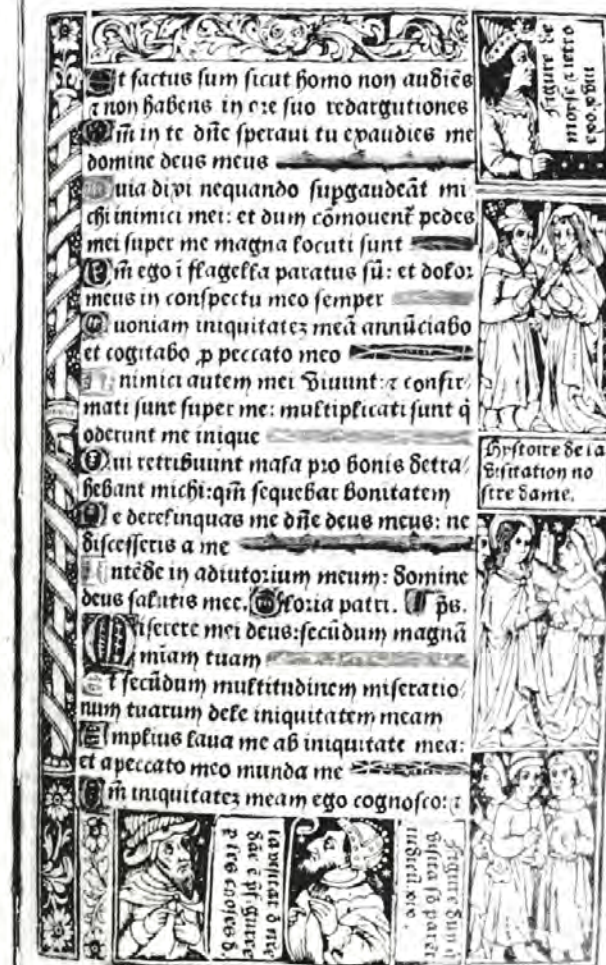 Et factus sum sicut homo non audiẽs
⁊ non habens in ore suo redargutiones
Qm̃ in te dñe speraui tu exaudies me
domine deus meus
Quia dixi nequando supgaudeãt mi
chi inimici mei: et dum cõmouent̃ pedes
mei super me magna locuti sunt
Qm̃ ego ĩ flagella paratus sũ: et dolor
meus in conspectu meo semper
Quoniam iniquitatez meã annũciabo
et cogitabo ꝓ peccato meo
Inimici autem mei viuunt: ⁊ confir/
mati sunt super me: multiplicati sunt q̃
oderunt me inique
Qui retribuunt mala pro bonis detra/
hebant michi: qm̃ sequebar bonitatem
Ne derelinquas me dñe deus meus: ne
discesseris a me
Intẽde in adiutorium meum: domine
deus salutis mee. Gloria patri. p̃s.
Miserere mei deus: secũdum magnã
miam tuam
Et secũdum multitudinem miseratio/
num tuarum dele iniquitatem meam
Amplius laua me ab iniquitate mea:
et a peccato meo munda me
Qm̃ iniquitatez meam ego cognosco: ⁊
figure de
Hystoire de la
visitation no
stre dame.
la visitat
figure
figure
visita